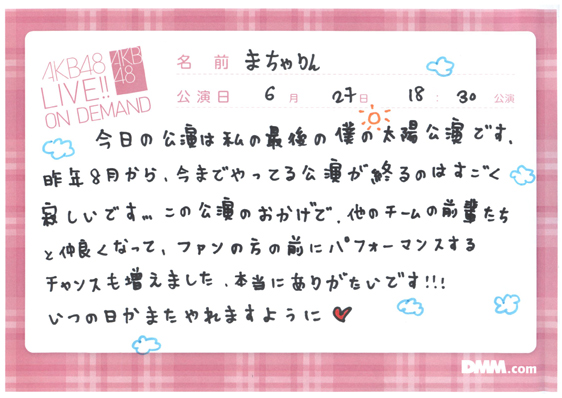 AKB48
LIVE!!
ON DEMAND
AKB
48
名前 まちゃりん
公演日 6月 27日 18:30 公演
今日の公演は私の最後の僕の太陽公演です、
昨年8月から、今までやってる公演が終るのはすごく
寂しいです… この公演のおかげで、他のチームの前輩たち
と仲良くなって、ファンの方の前にパフォーマンスする
チャンスも増えました、本当にありがたいです!!!
いつの日かまたやれますように
DMM.com